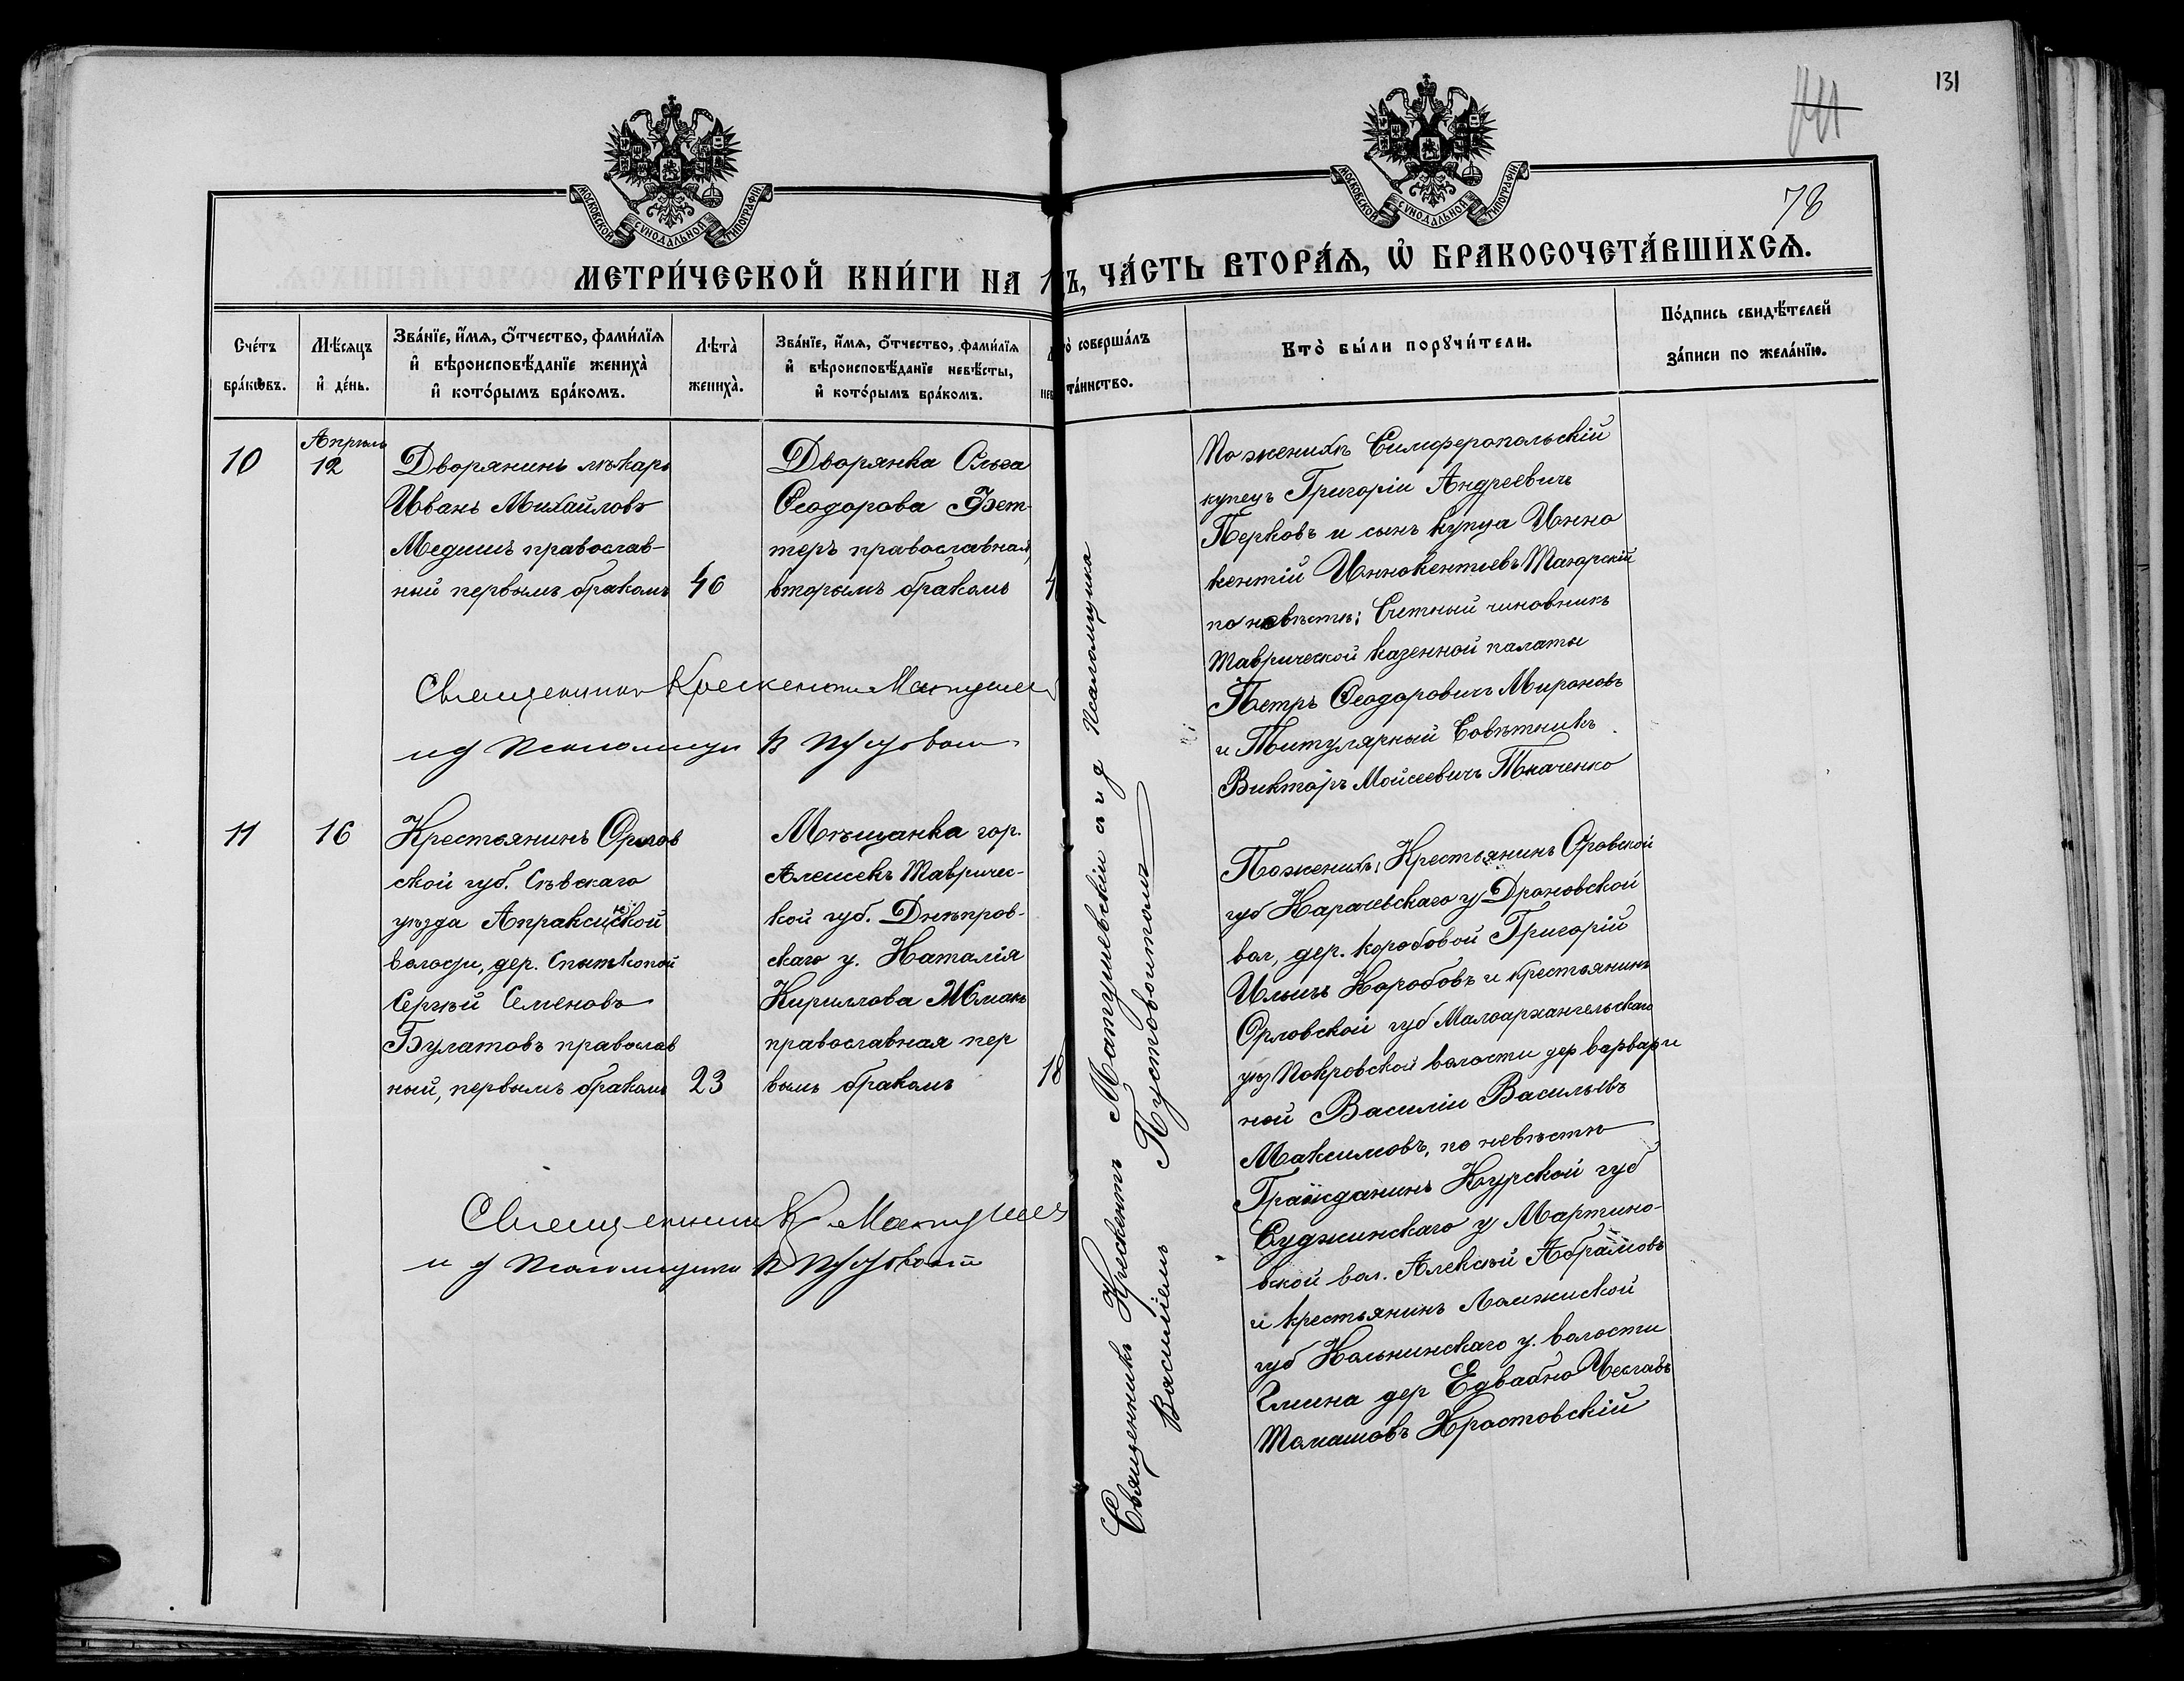 131
78
МОСКОВСКОЙ СѴНОДАЛЬНОЙ ТИПОГРАФІИ
МОСКОВСКОЙ СѴНОДАЛЬНОЙ ТИПОГРАФІИ
МЕТРИ́ЧЕСКОЙ КНИ́ГИ НА 1 Ъ, ЧА́СТЬ ВТОРА́Ѧ, Ѽ БРАКОСОЧЕТА́ВШИХСѦ.
Сче́тъ бра́кѡвъ.
Мѣ́сяцъ и҆ де́нь.
Зва́нїе, и҆́мѧ, ѻ҆́тчество, фами́лїѧ и҆ вѣроисповѣ́данїе жениха̀ и҆ кото́рымъ бра́комъ.
Лѣта̀ жениха̀.
Зва́нїе, и҆́мѧ, ѻ҆́тчество, фами́лїѧ и҆ вѣроисповѣ́данїе невѣ́сты, и҆ кото́рымъ бра́комъ.
то̀ соверша́лъ та́инство.
Кто̀ бы́ли порꙋчи́тели.
По́дпись свидѣ́телей за́писи по жела́нїю.
10
Апрѣль
12
Дворянинъ лѣкарь
Иванъ Михайловъ
Медишъ православ-
ный первымъ бракомъ
46
Дворянка Ольга
Ѳеодорова Фет-
теръ православная,
вторымъ бракомъ
4
По женихѣ Симферопольскій
купецъ Григорій Андреевичъ
Перковъ и сынъ купца Инно
кентій Иннокентьевъ Тагорскій
по невѣстѣ: Счетный чиновникъ
Таврической казенной палаты
Петръ Ѳеодоровичъ Мироновъ
и Титулярный Совѣтникъ
Викторъ Мойсеевичъ Ткаченко
Священникъ Крескентъ Матушев
и д Псаломщика В Пустовойт
11
16
Крестьянинъ Орлов
ской губ. Сѣвскаго
уѣзда Апраксинской
волости, дер.
Сергѣй Семеновъ
Булатовъ православ
ный, первымъ бракомъ
23
Мѣщанка гор.
Алешекъ Тавричес-
кой губ. Днѣпров-
скаго у. Наталія
Кириллова
православная пер
вымъ бракомъ
18
По женихѣ: Крестьянинъ Оровской
губ Карачевскаго у Дроновской
вол, дер. Коробовой Григорій
Ильичъ Коробовъ и крестьянинъ
Орловской губ Малоархангельскаго
уѣз Покровской волости дер Варвари
ной Василій Васильевъ
Максимовъ, по невѣстѣ
Гражданинъ Курской губ
Суджинскаго у Мартино-
вской вол. Алексѣй Абрамовъ
и крестьянинъ Ломжиской
губ Кольнинскаго у. волости
Гмина дер Едвабно Чеславъ
Томашовъ Хростовскій
Священникъ К Матушев
и д Псаломщика В Пустовойт
Священникъ Крескентъ Матушевскій с и д псаломщика
Василіемъ Пустовойтомъ